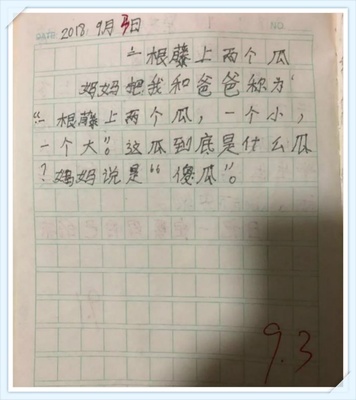 2018 9月3日
一根藤上两个瓜
妈妈把我和爸爸称为
“一根藤上两个瓜，一个小，
一个大”。这瓜到底是什么瓜
？妈妈说是“傻瓜”。
9.3